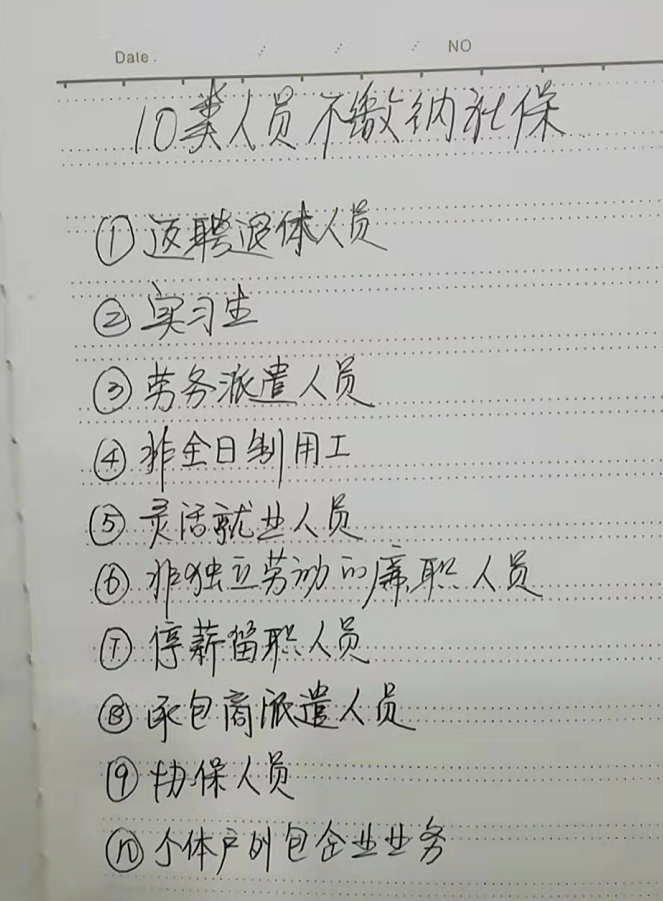 Date.
NO
10类人员不缴纳社保
①返聘退休人员
②实习生
③劳务派遣人员
④非全日制用工
⑤灵活就业人员
⑥非独立劳动的廉职人员
⑦停薪留职人员
⑧承包商派遣人员
⑨协保人员
⑩个体户外包企业业务